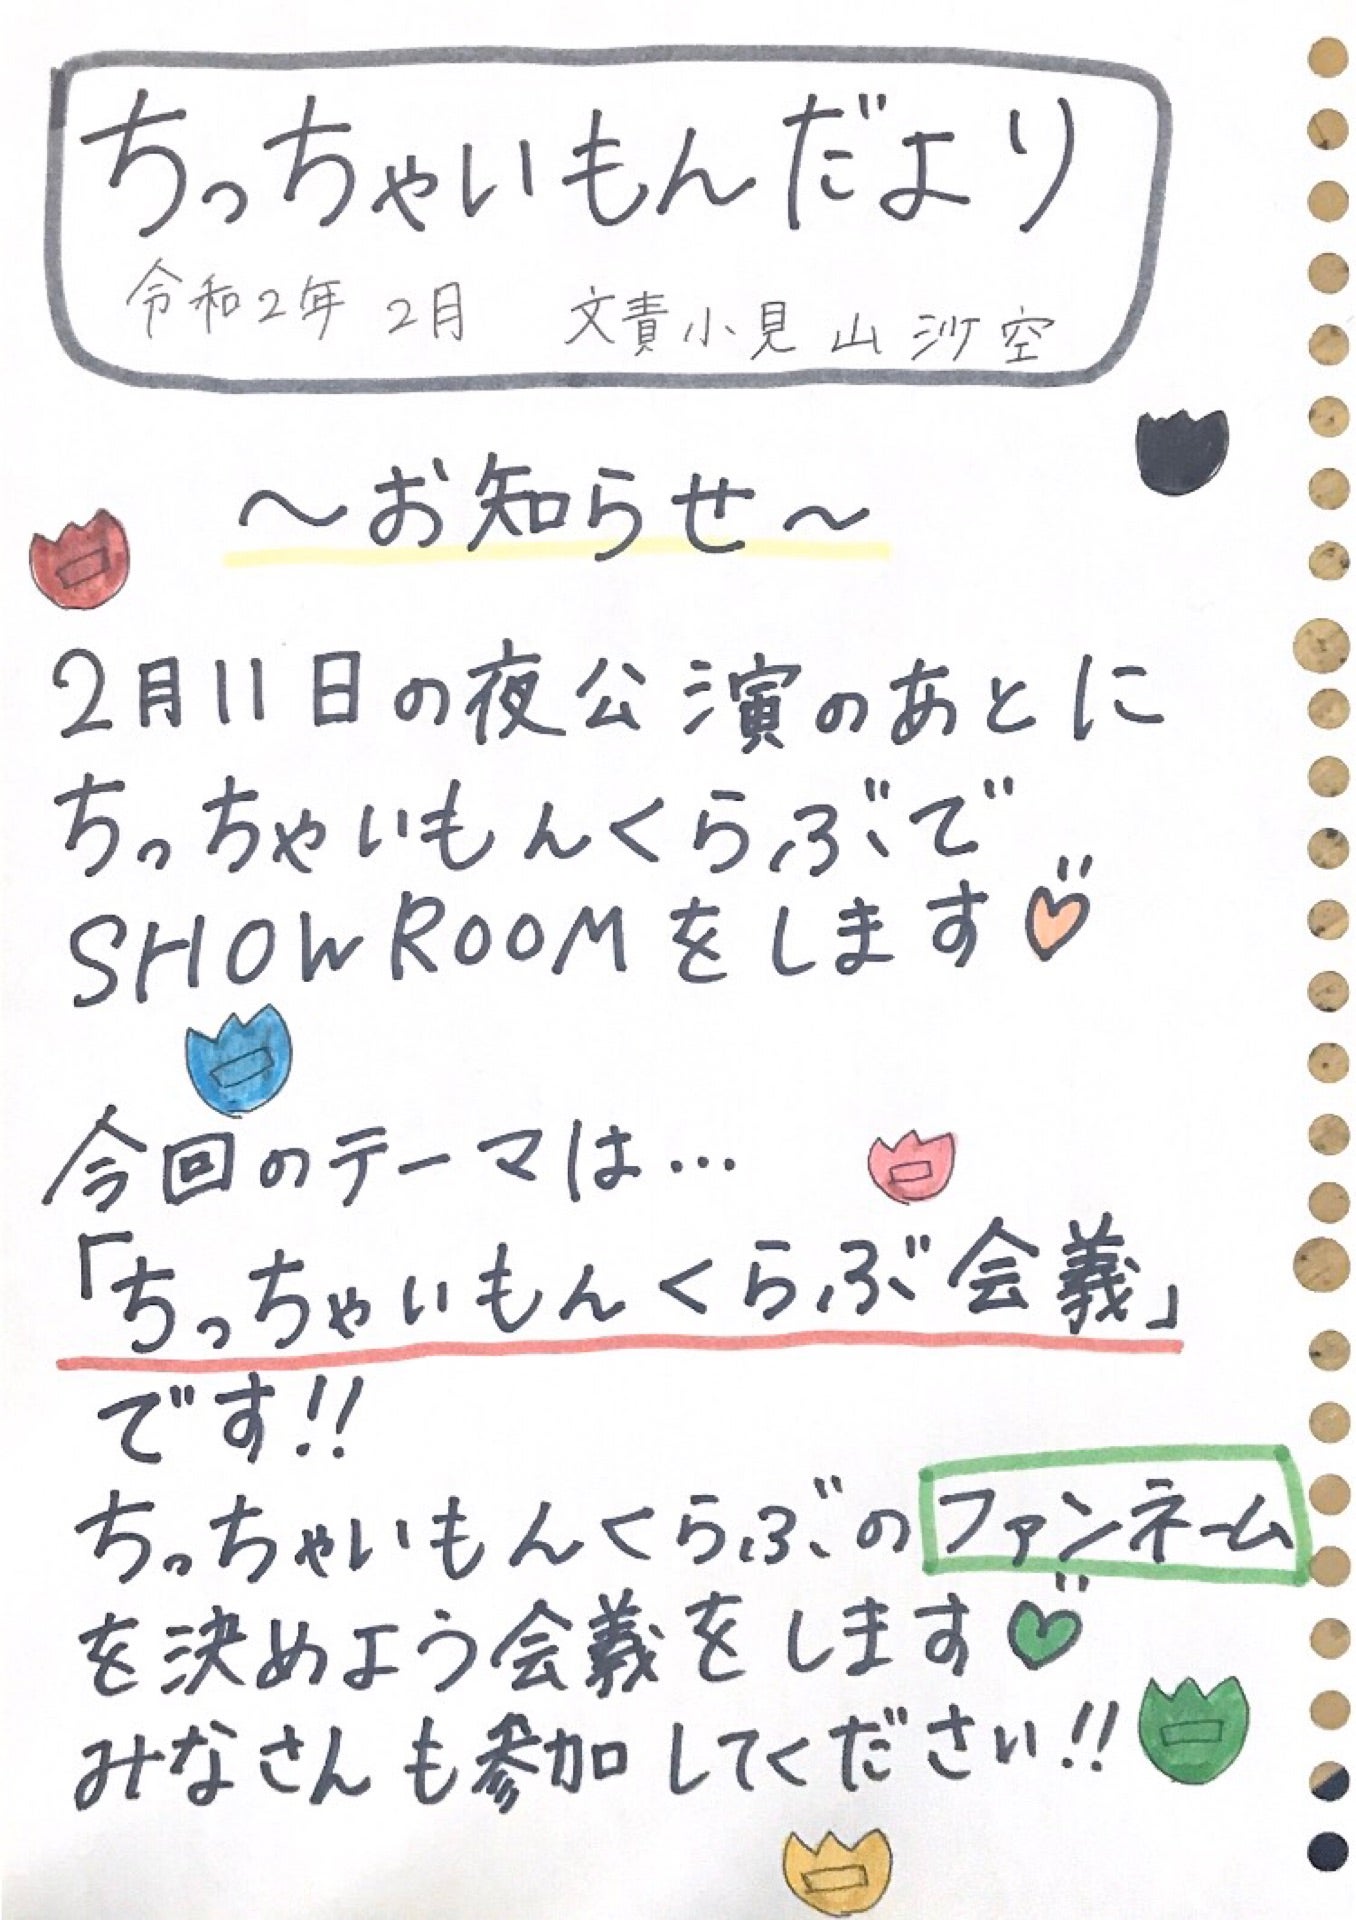 ちっちゃいもんだより
令和2年 2月 文責小見山沙空
〜お知らせ〜
2月11日の夜公演のあとに
ちっちゃいもんくらぶで
SHOWROOMをします
今回のテーマは…
「ちっちゃいもんくらぶ会議」
です!!
ちっちゃいもんくらぶのファンネーム
を決めよう会議をします
みなさんも参加してください!!